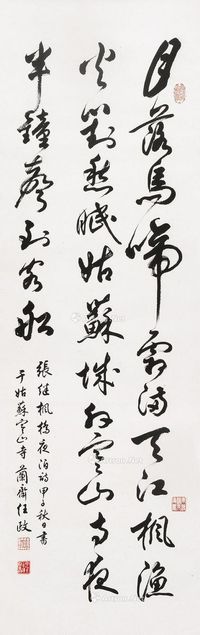 月落烏啼霜滿天江楓漁
火對愁眠姑蘇城外寒山寺夜
半鐘聲到客船
張継楓橋夜泊詩甲子秋日書
于姑蘇寒山寺蘭齋任政